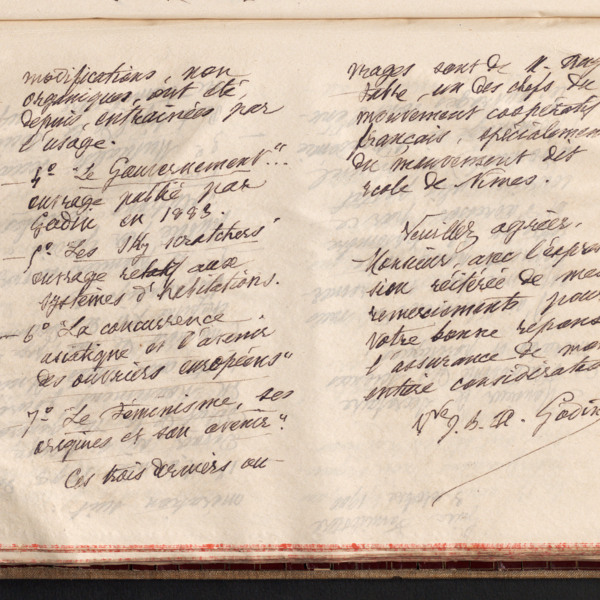 modifications, non
organiques, ont été
depuis, entraînées par
l'usage.
— 4º "Le Gouvernement"...
ouvrage publié par
Godin en 1883.
— 5º "Les Sky scratchers"
ouvrage relatif aux
systèmes d'habitations.
— 6º "La concurrence
asiatique et l'avenir
des ouvriers européens"
7º "Le Féminisme, ses
origines et son avenir".
Ces trois derniers ou-
vrages sont de M.
Fabre, un des chefs du
mouvement coopératif
français, spécialement
du mouvement dit
école de Nîmes.
Veuillez agréer,
Monsieur, avec l'expres
sion réitérée de mes
remerciements pour
votre bonne réponse
l'assurance de mon
entière considération
Vve J. B. A. Godin